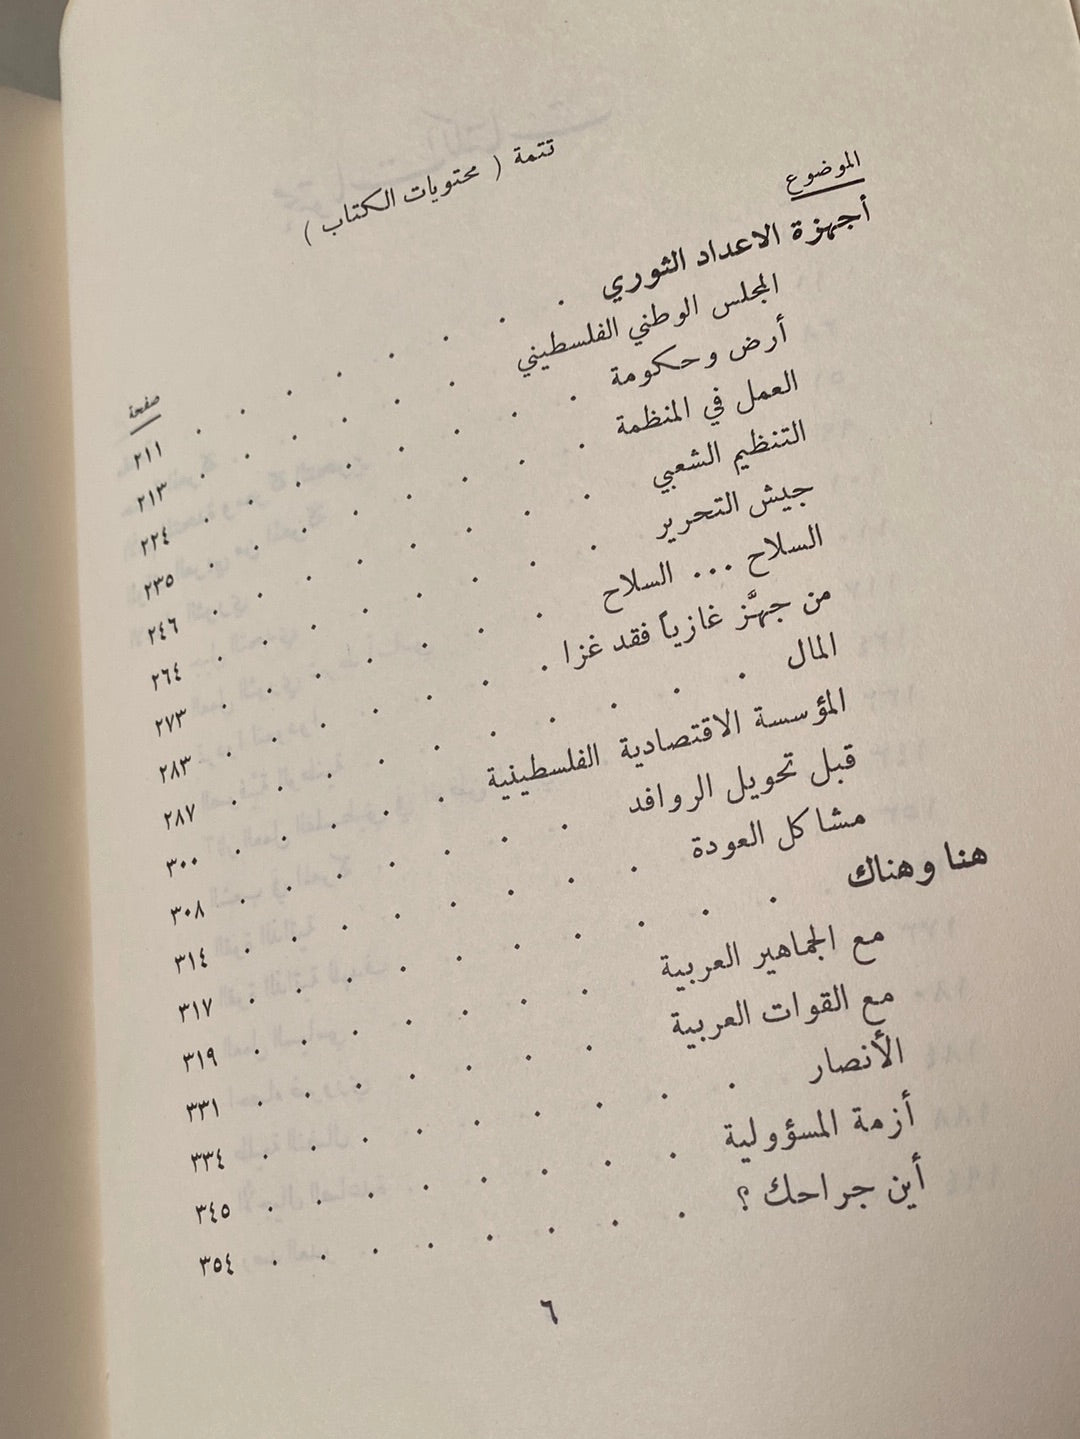 تتمة ( محتويات الكتاب )
الموضوع صفحة
أجهزة الاعداد الثوري . . . . . . . ٢١١
المجلس الوطني الفلسطيني . . . . . . ٢١٣
أرض وحكومة . . . . . . . . ٢٢٤
العمل في المنظمة . . . . . . . . ٢٣٥
التنظيم الشعبي . . . . . . . . ٢٤٦
جيش التحرير . . . . . . . . ٢٦٤
السلاح ... السلاح . . . . . . . ٢٧٣
من جهَّز غازياً فقد غزا . . . . . . . ٢٨٣
المال . . . . . . . . . . ٢٨٧
المؤسسة الاقتصادية الفلسطينية . . . . . ٣٠٠
قبل تحويل الروافد . . . . . . . ٣٠٨
مشاكل العودة . . . . . . . . ٣١٤
هنا وهناك . . . . . . . . . . ٣١٧
مع الجماهير العربية . . . . . . . ٣١٩
مع القوات العربية . . . . . . . ٣٣١
الأنصار . . . . . . . . . ٣٣٤
أزمة المسؤولية . . . . . . . . ٣٤٥
أين جراحك ؟ . . . . . . . . ٣٥٤
٦